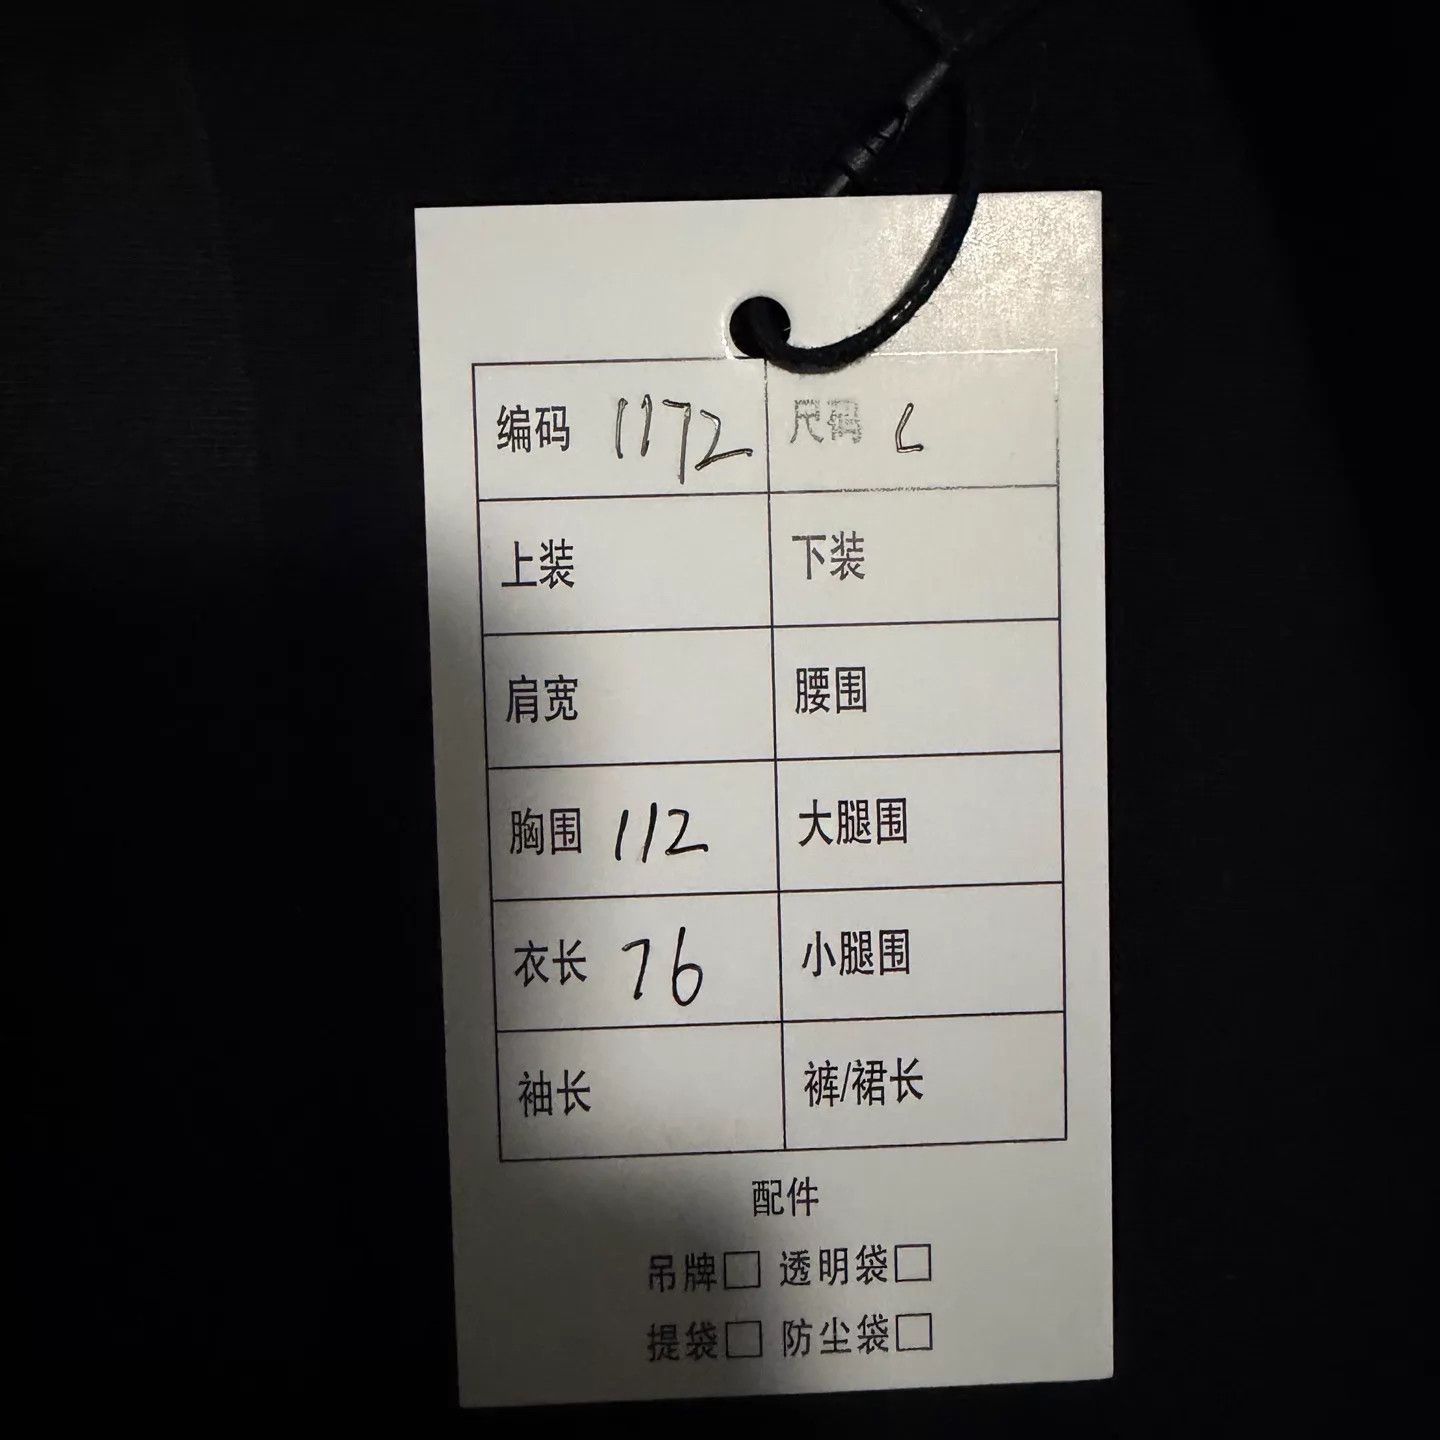 编码 1172 尺码 L
上装 下装
肩宽 腰围
胸围 112 大腿围
衣长 76 小腿围
袖长 裤/裙长
配件
吊牌□ 透明袋□
提袋□ 防尘袋□